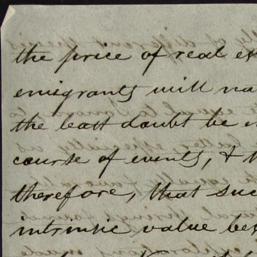 the price of real es
emigrants will na
the least doubt be
course of events, &
therefore, that suc
intrinsic value be